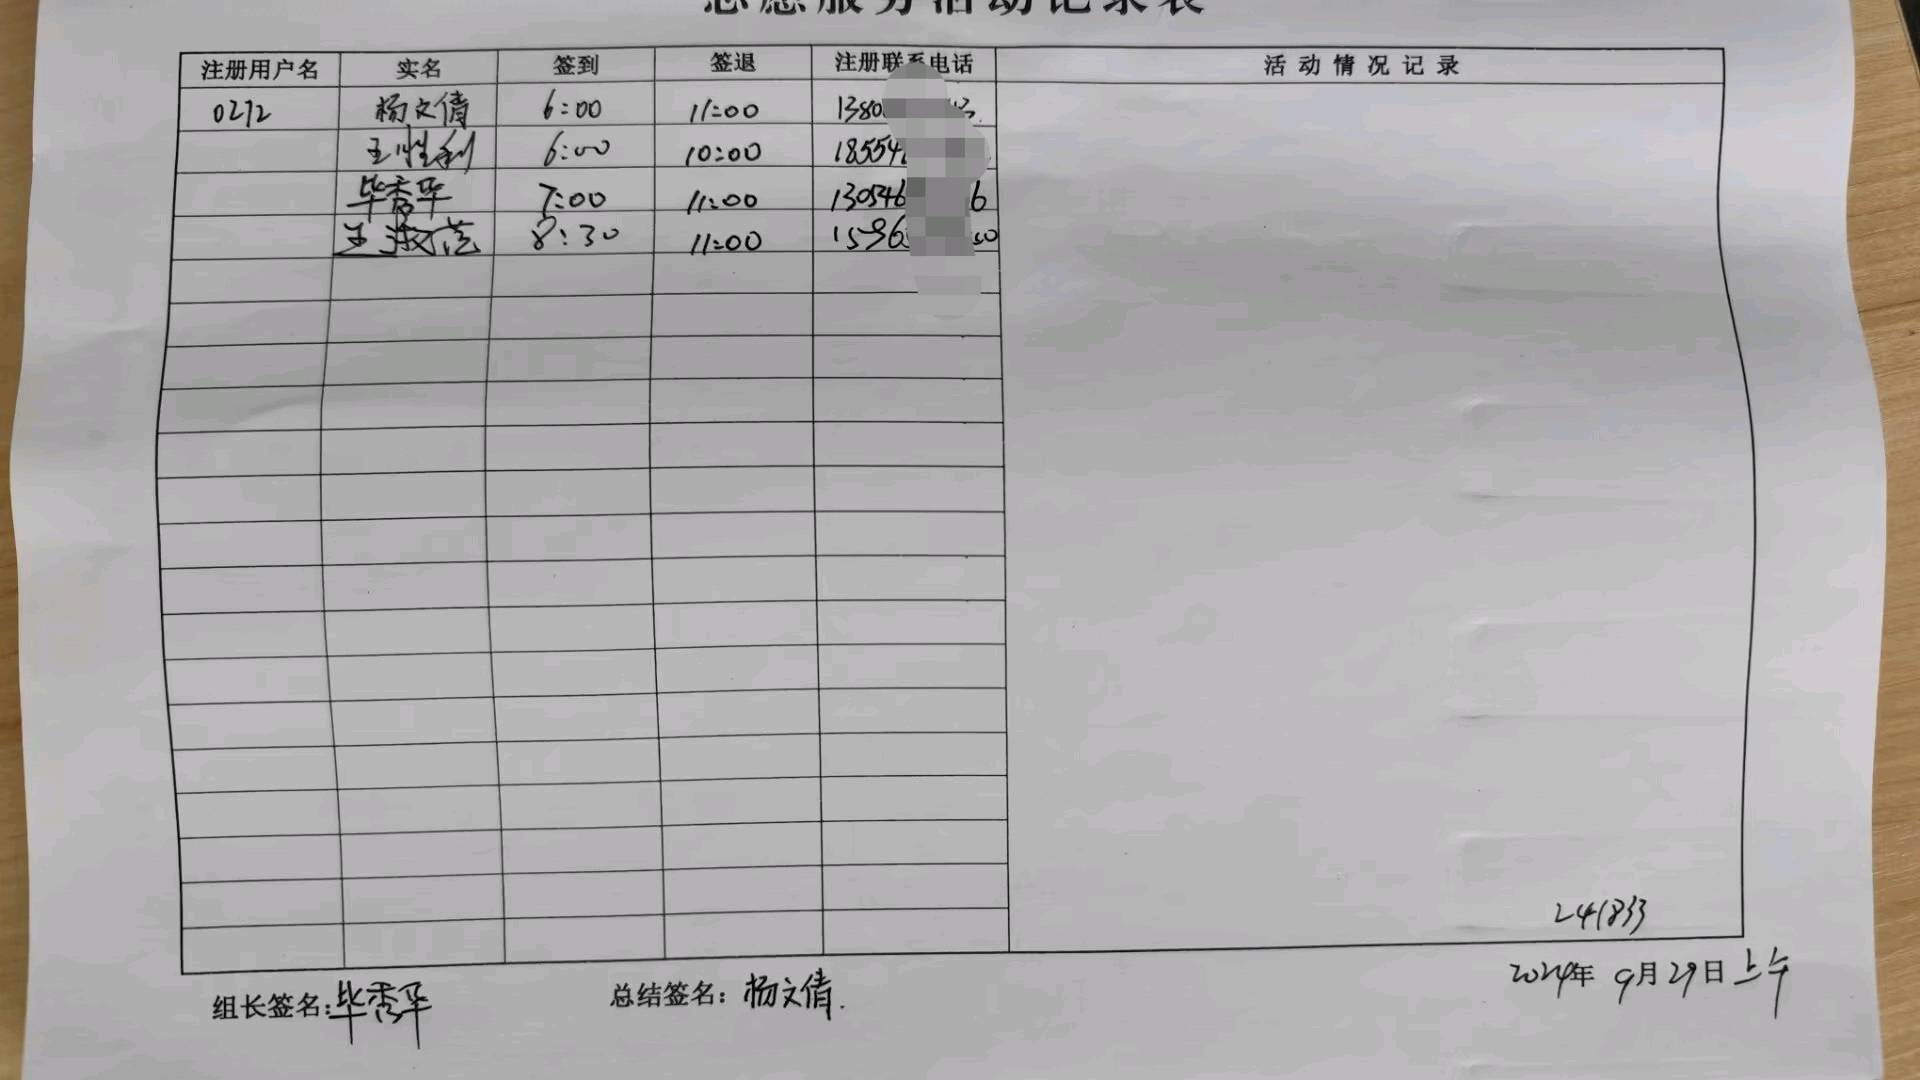 志愿服务活动记录表
注册用户名 实名 签到 签退 注册联系电话 活动情况记录
0272 杨文倩 6:00 11:00 1380
王性利 6:00 10:00 18554
毕秀华 7:00 11:00 130546 6
王淑 8:30 11:00 1596 50
241833
2024年9月29日上午
组长签名:毕秀华 总结签名:杨文倩.